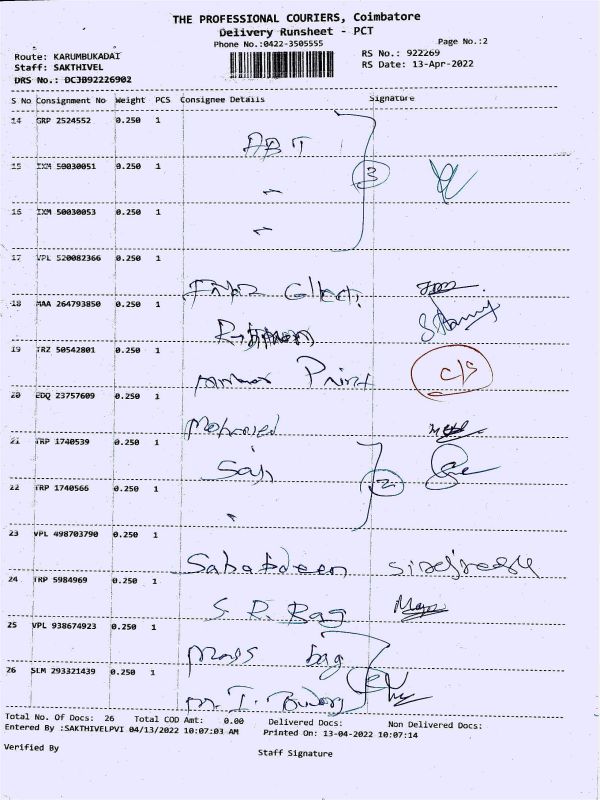 THE PROFESSIONAL COURIERS, Coimbatore
Delivery Runsheet - PCT
Phone No.:0422-3505555
Page No.:2
Route: KARUMBUKADAI
RS No.: 922269
Staff: SAKTHIVEL
RS Date: 13-Apr-2022
DRS No.: DCJB92226902
S No Consignment No Weight PCS Consignee Details Signature
14 GRP 2524552 0.250 1
ABT
15 IXM 50030051 0.250 1
3
16 IXM 50030053 0.250 1
17 VPL 520082366 0.250 1
18 MAA 264793850 0.250 1
19 TRZ 50542801 0.250 1
Print C/S
20 EDQ 23757609 0.250 1
Mohamed
21 TRP 1740539 0.250 1
Saji
22 TRP 1740566 0.250 1
2
23 VPL 498703790 0.250 1
Sababdeen
24 TRP 5984969 0.250 1
S. R. Bag
25 VPL 938674923 0.250 1
Mass bag
26 SLM 293321439 0.250 1
M. I.
Total No. Of Docs: 26 Total COD Amt: 0.00 Delivered Docs: Non Delivered Docs:
Entered By :SAKTHIVELPVI 04/13/2022 10:07:03 AM Printed On: 13-04-2022 10:07:14
Verified By
Staff Signature